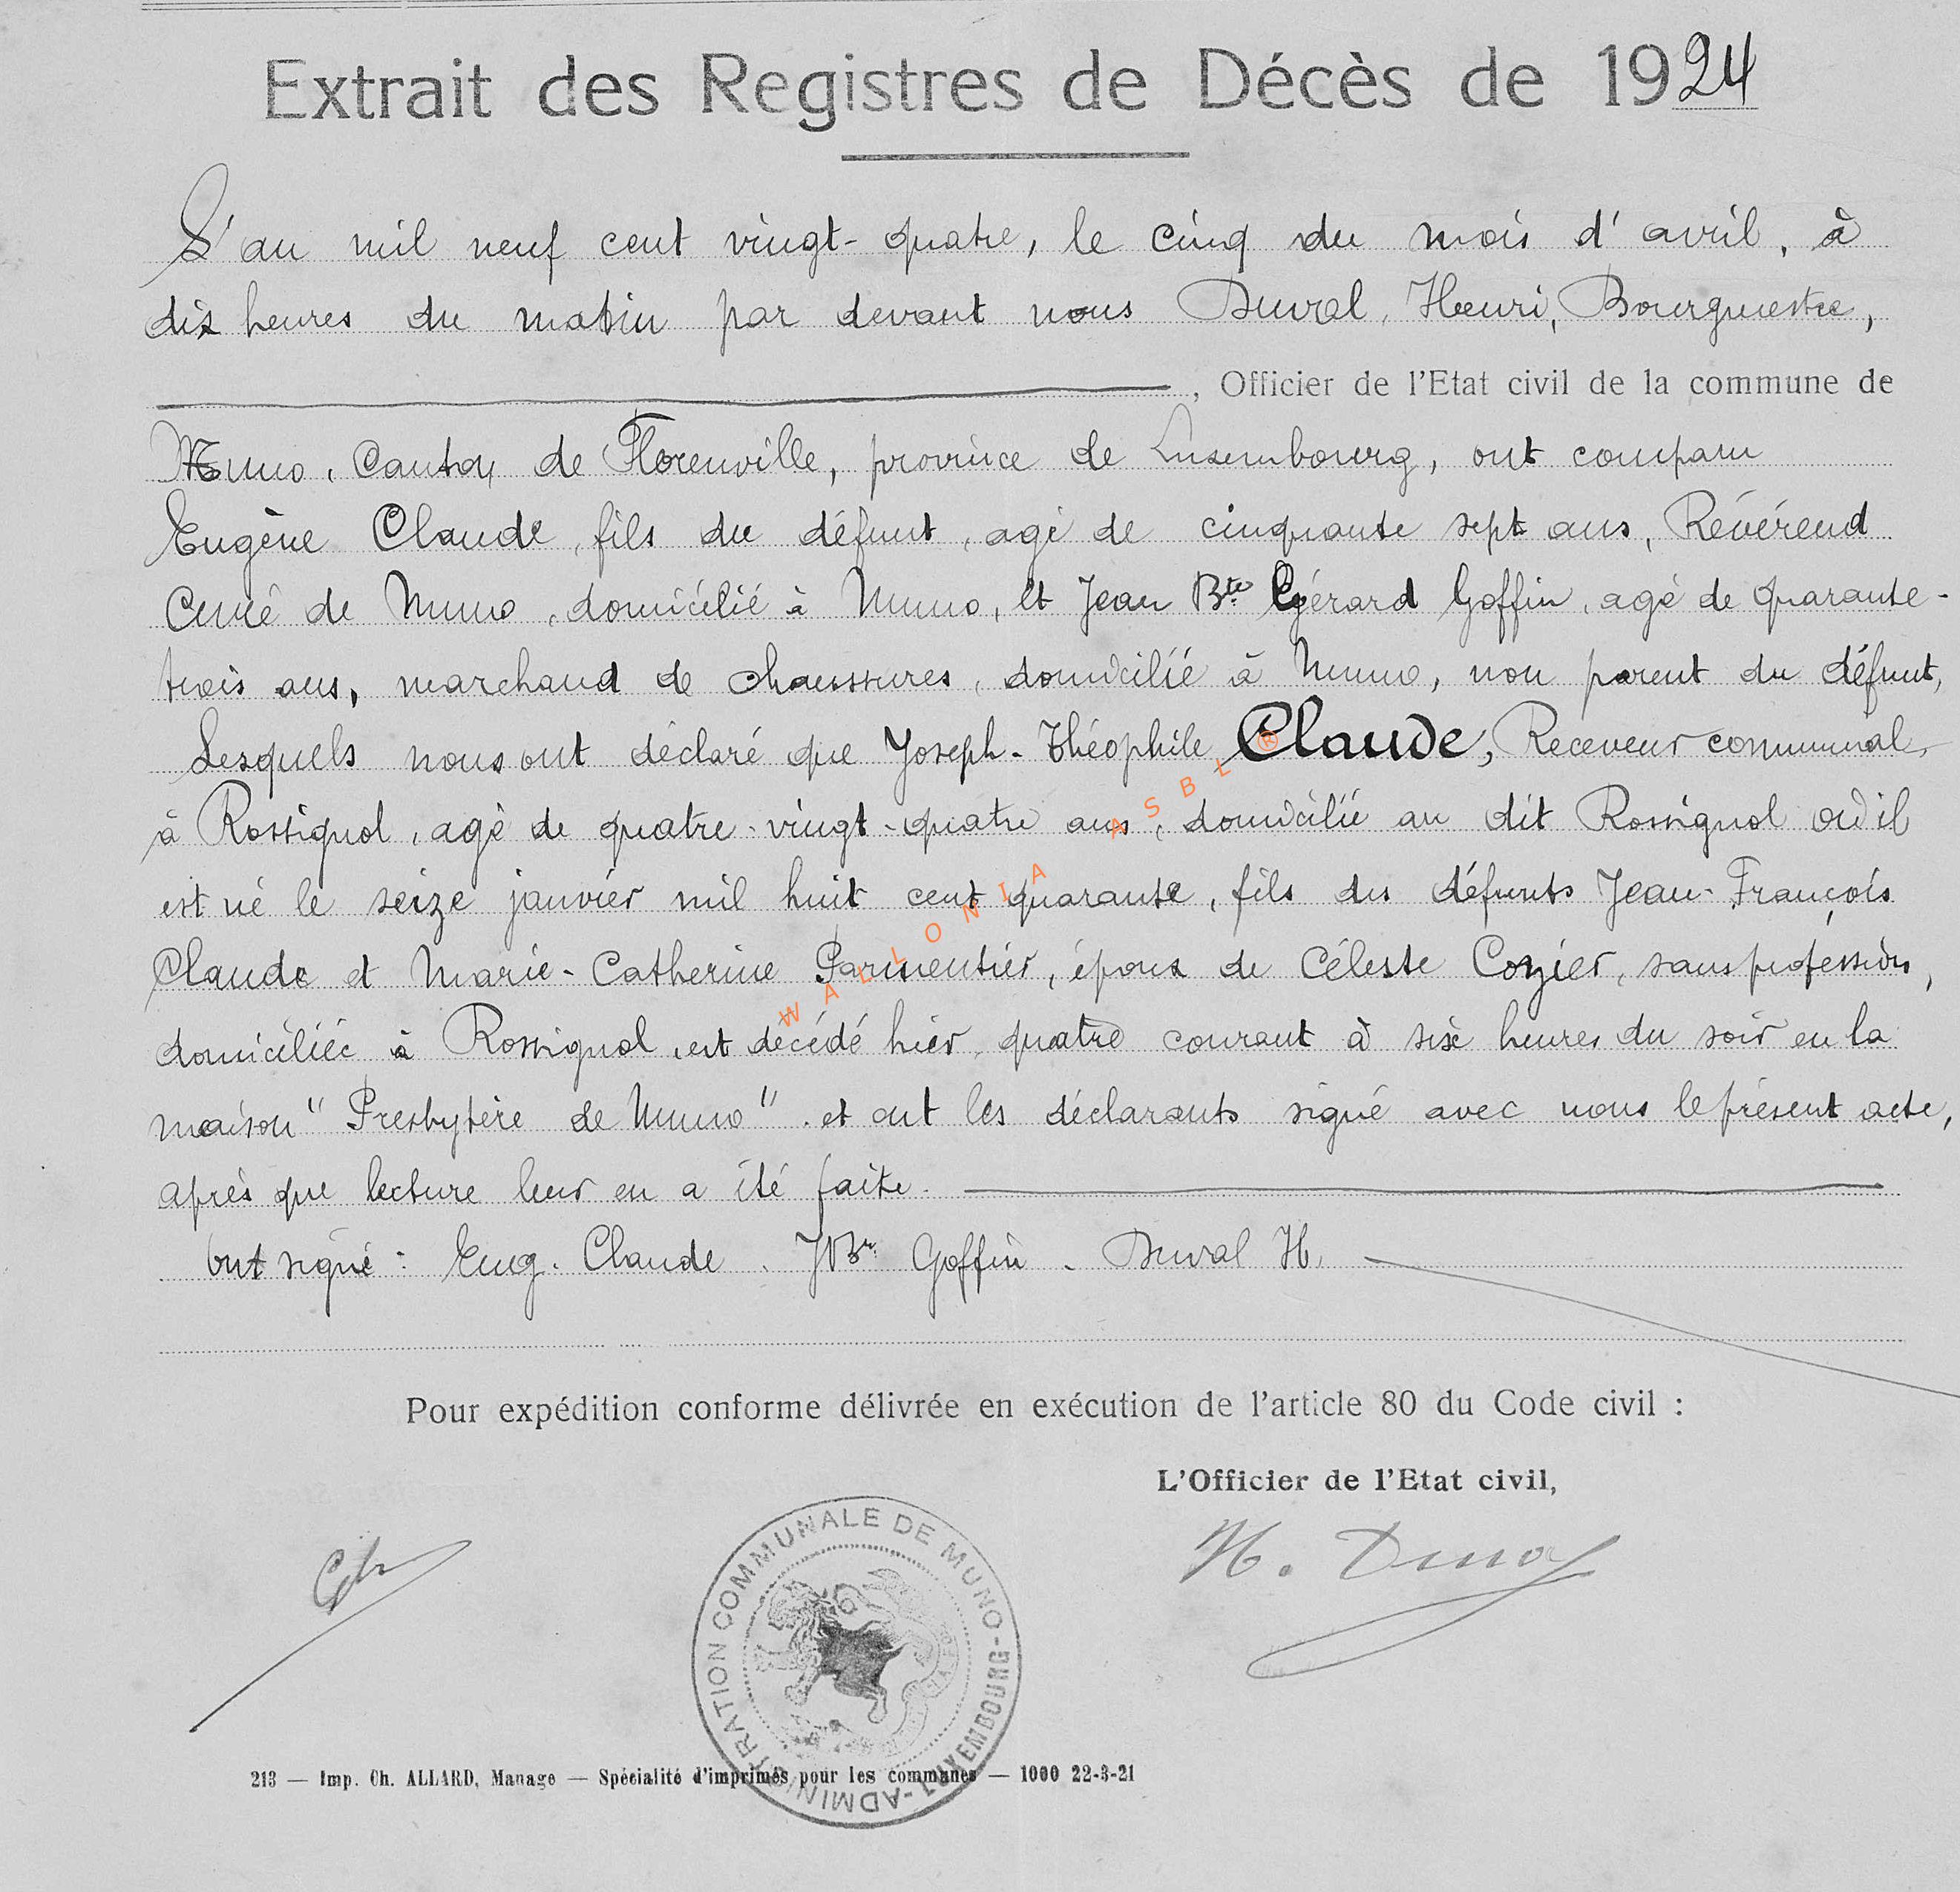 Extrait des Registres de Décès de 1924
L'an mil neuf cent vingt-quatre, le cinq du mois d'avril, à
dix heures du matin par devant nous Duval, Henri, Bourgmestre,
, Officier de l'Etat civil de la commune de
Muno, Canton de Florenville, province de Luxembourg, ont comparu
Eugène Claude, fils du défunt, agé de cinquante sept ans, Révérend
Curé de Muno, domicilié à Muno, et Jean Bte Gérard Goffin, agé de quarante-
trois ans, marchand de chaussures, domicilié à Muno, non parent du défunt,
Lesquels nous ont déclaré que Joseph-Théophile Claude, Receveur communal,
à Rossignol, agé de quatre-vingt-quatre ans, domicilié au dit Rossignol où il
est né le seize janvier mil huit cent quarante, fils des défunts Jean-François
Claude et Marie-Catherine Parmentier, époux de Céleste Cozier, sans profession,
domiciliée à Rossignol, est décédé hier, quatre courant à six heures du soir en la
maison "Presbytère de Muno". et ont les déclarants signé avec nous le présent acte,
après que lecture leur en a été faite.
Ont signé : Eug. Claude. JBte Goffin. Duval H.
Pour expédition conforme délivrée en exécution de l'article 80 du Code civil :
L'Officier de l'Etat civil,
H. Duval
ADMINISTRATION COMMUNALE DE MUNO - LUXEMBOURG -
213 — Imp. Ch. ALLARD, Manage — Spécialité d'imprimés pour les communes — 1000 22-3-21
WALLONIA ASBL ®